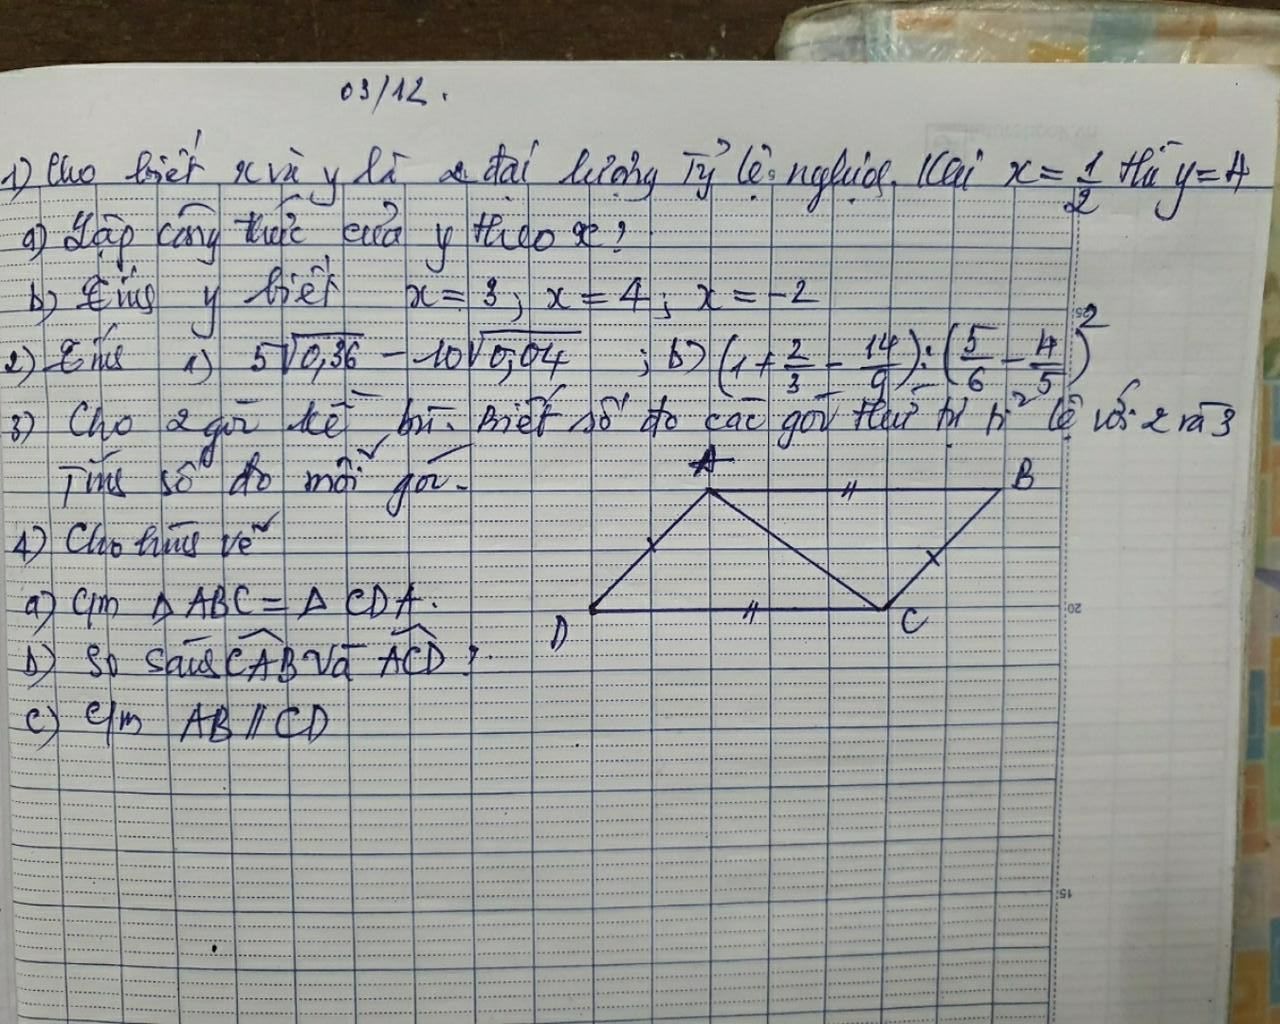 03/12.
1) Cho biết x và y là 2 đại lượng Tỷ lệ nghịch. Khi x = 1/2 thì y = 4
a) Lập công thức của y theo x?
b) Tính y biết x = 3; x = 4; x = -2
2) Tính 1) 5√0,36 - 10√0,04 ; b) (1 + 2/3 - 14/9) : (5/6 - 4/5)²
3) Cho 2 góc kề bù. Biết số đo các góc thứ tự tỉ lệ với 2 và 3
Tính số đo mỗi góc.
4) Cho hình vẽ
a) C/m Δ ABC = Δ CDA.
b) So sánh CAB và ACD?
c) C/m AB // CD
A
B
D
C
25
20
15